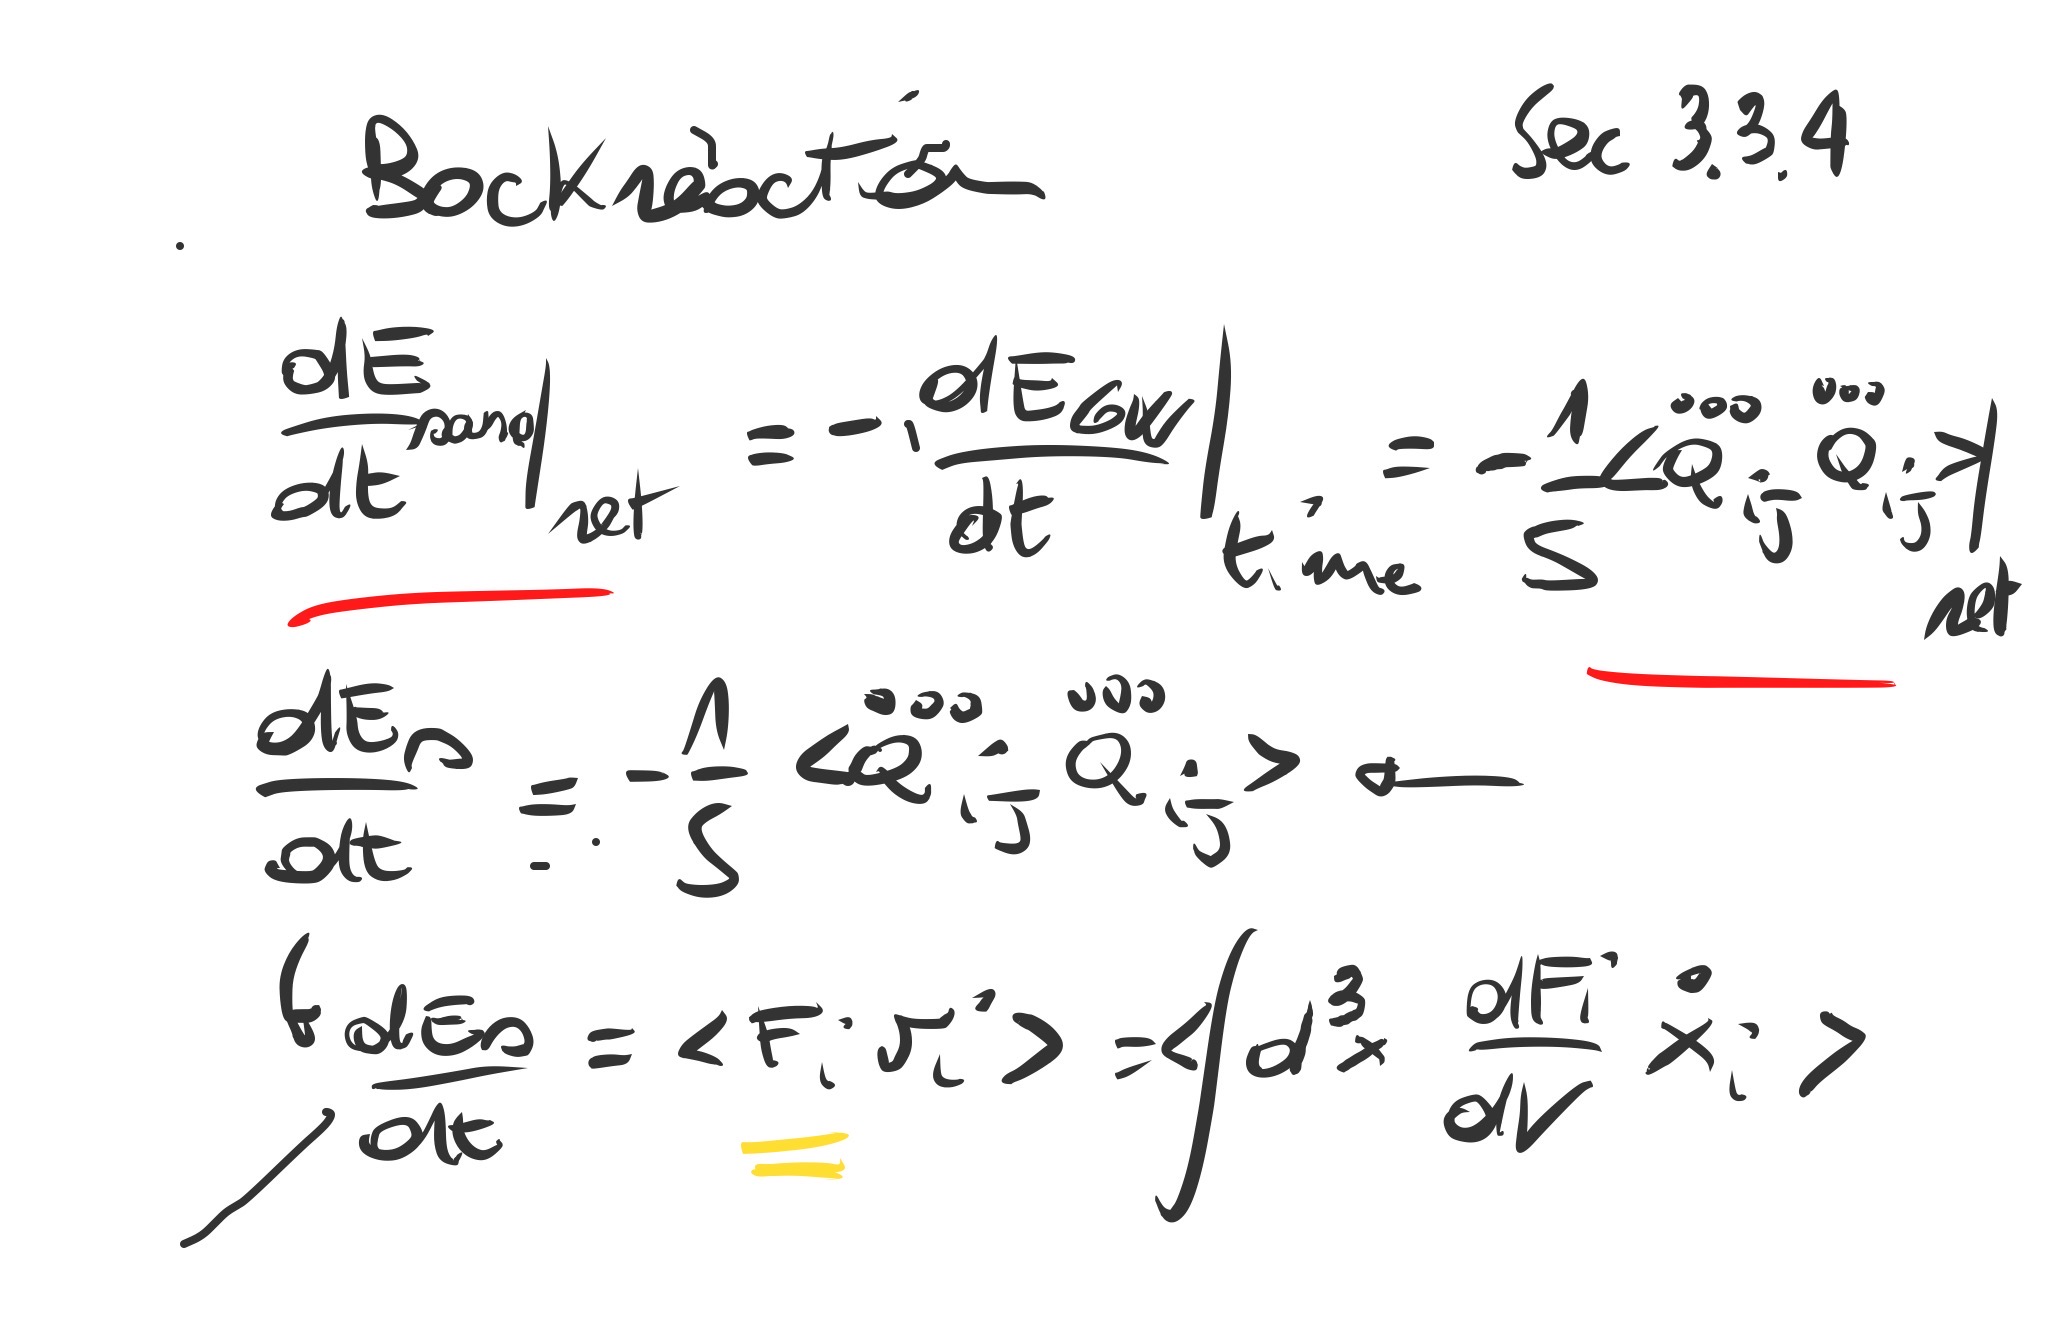 Backreaction Sec 3.3.4
dE/dt sand|ret = - dE_GW/dt |time = - 1/5 <Q⃛_ij Q⃛_ij>|ret
dE_s/dt = - 1/5 <Q⃛_ij Q⃛_ij> ←
dE_s/dt = <F_i v_i> = <∫ d³x dF_i/dV ẋ_i>